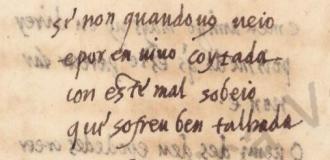 se non quando uꝯ ueio
e por en uiuo coytada
con este mal sobeio
que sofreu ben talhada